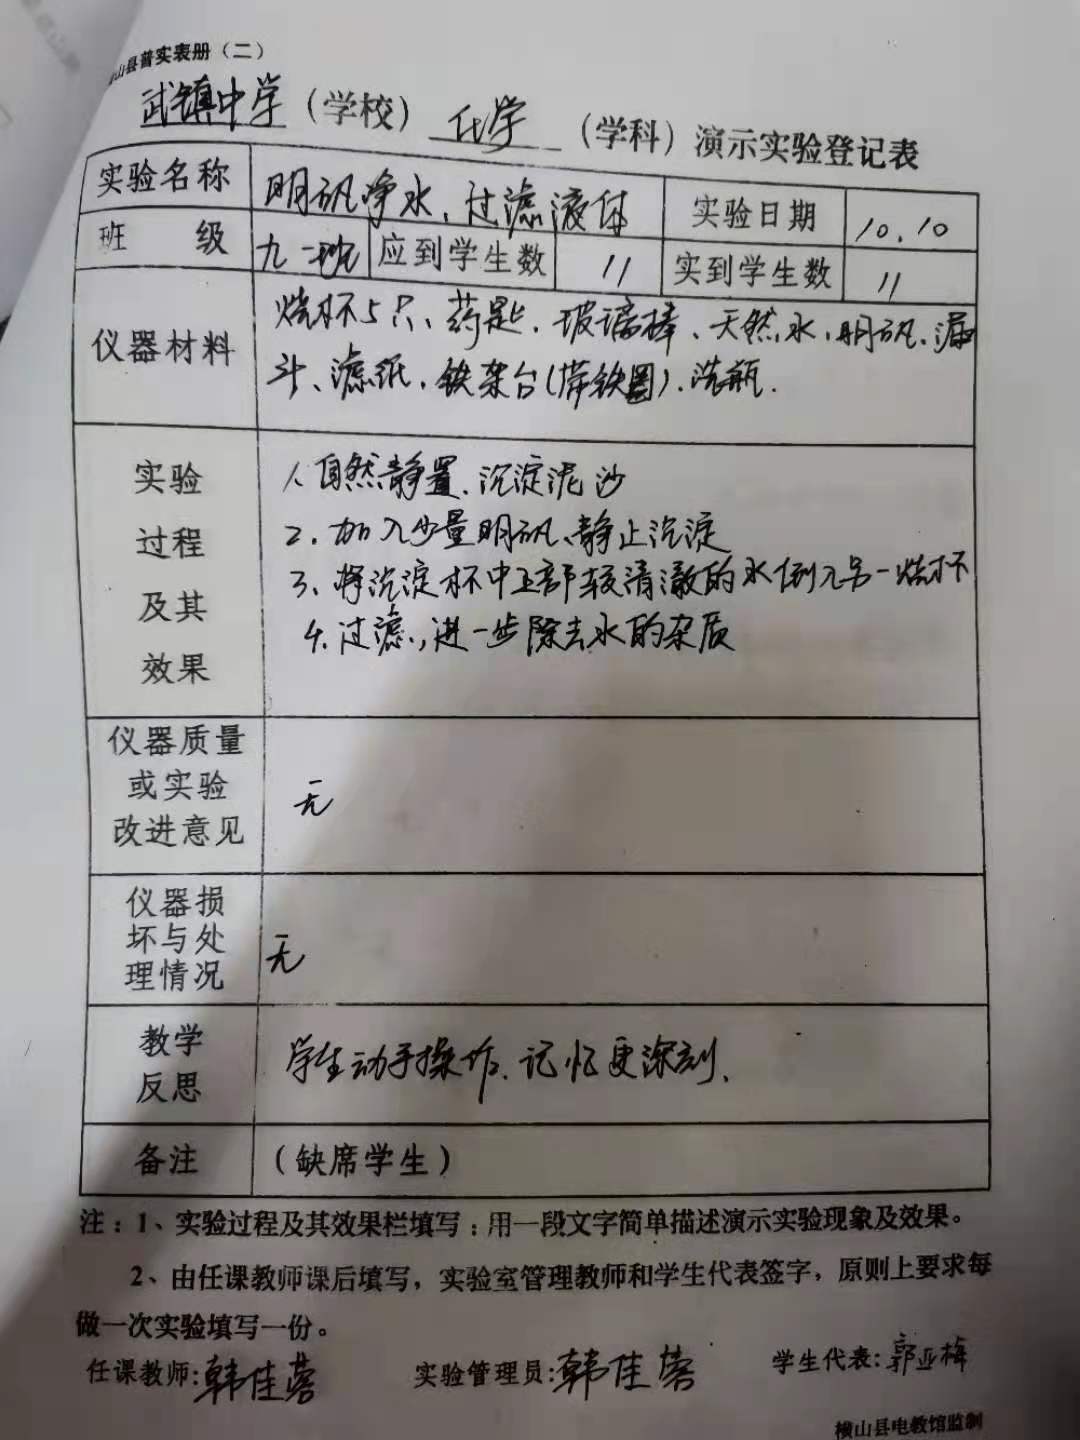 山县普实表册（二）
武镇中学（学校）化学（学科）演示实验登记表
实验名称 明矾净水、过滤液体 实验日期 10.10
班 级 九一班 应到学生数 11 实到学生数 11
仪器材料 烧杯5只、药匙、玻璃棒、天然水、明矾、漏
斗、滤纸、铁架台(带铁圈)、洗瓶.
实验
过程
及其
效果
1. 自然静置、沉淀泥沙
2. 加入少量明矾、静止沉淀
3、将沉淀杯中上部较清澈的水倒入另一烧杯
4. 过滤，进一步除去水的杂质
仪器质量
或实验
改进意见
无
仪器损
坏与处
理情况
无
教学
反思
学生动手操作、记忆更深刻、
备注 （缺席学生）
注：1、实验过程及其效果栏填写：用一段文字简单描述演示实验现象及效果。
2、由任课教师课后填写，实验室管理教师和学生代表签字，原则上要求每
做一次实验填写一份。
任课教师:韩佳蓉 实验管理员:韩佳蓉 学生代表:郭亚梅
横山县电教馆监制